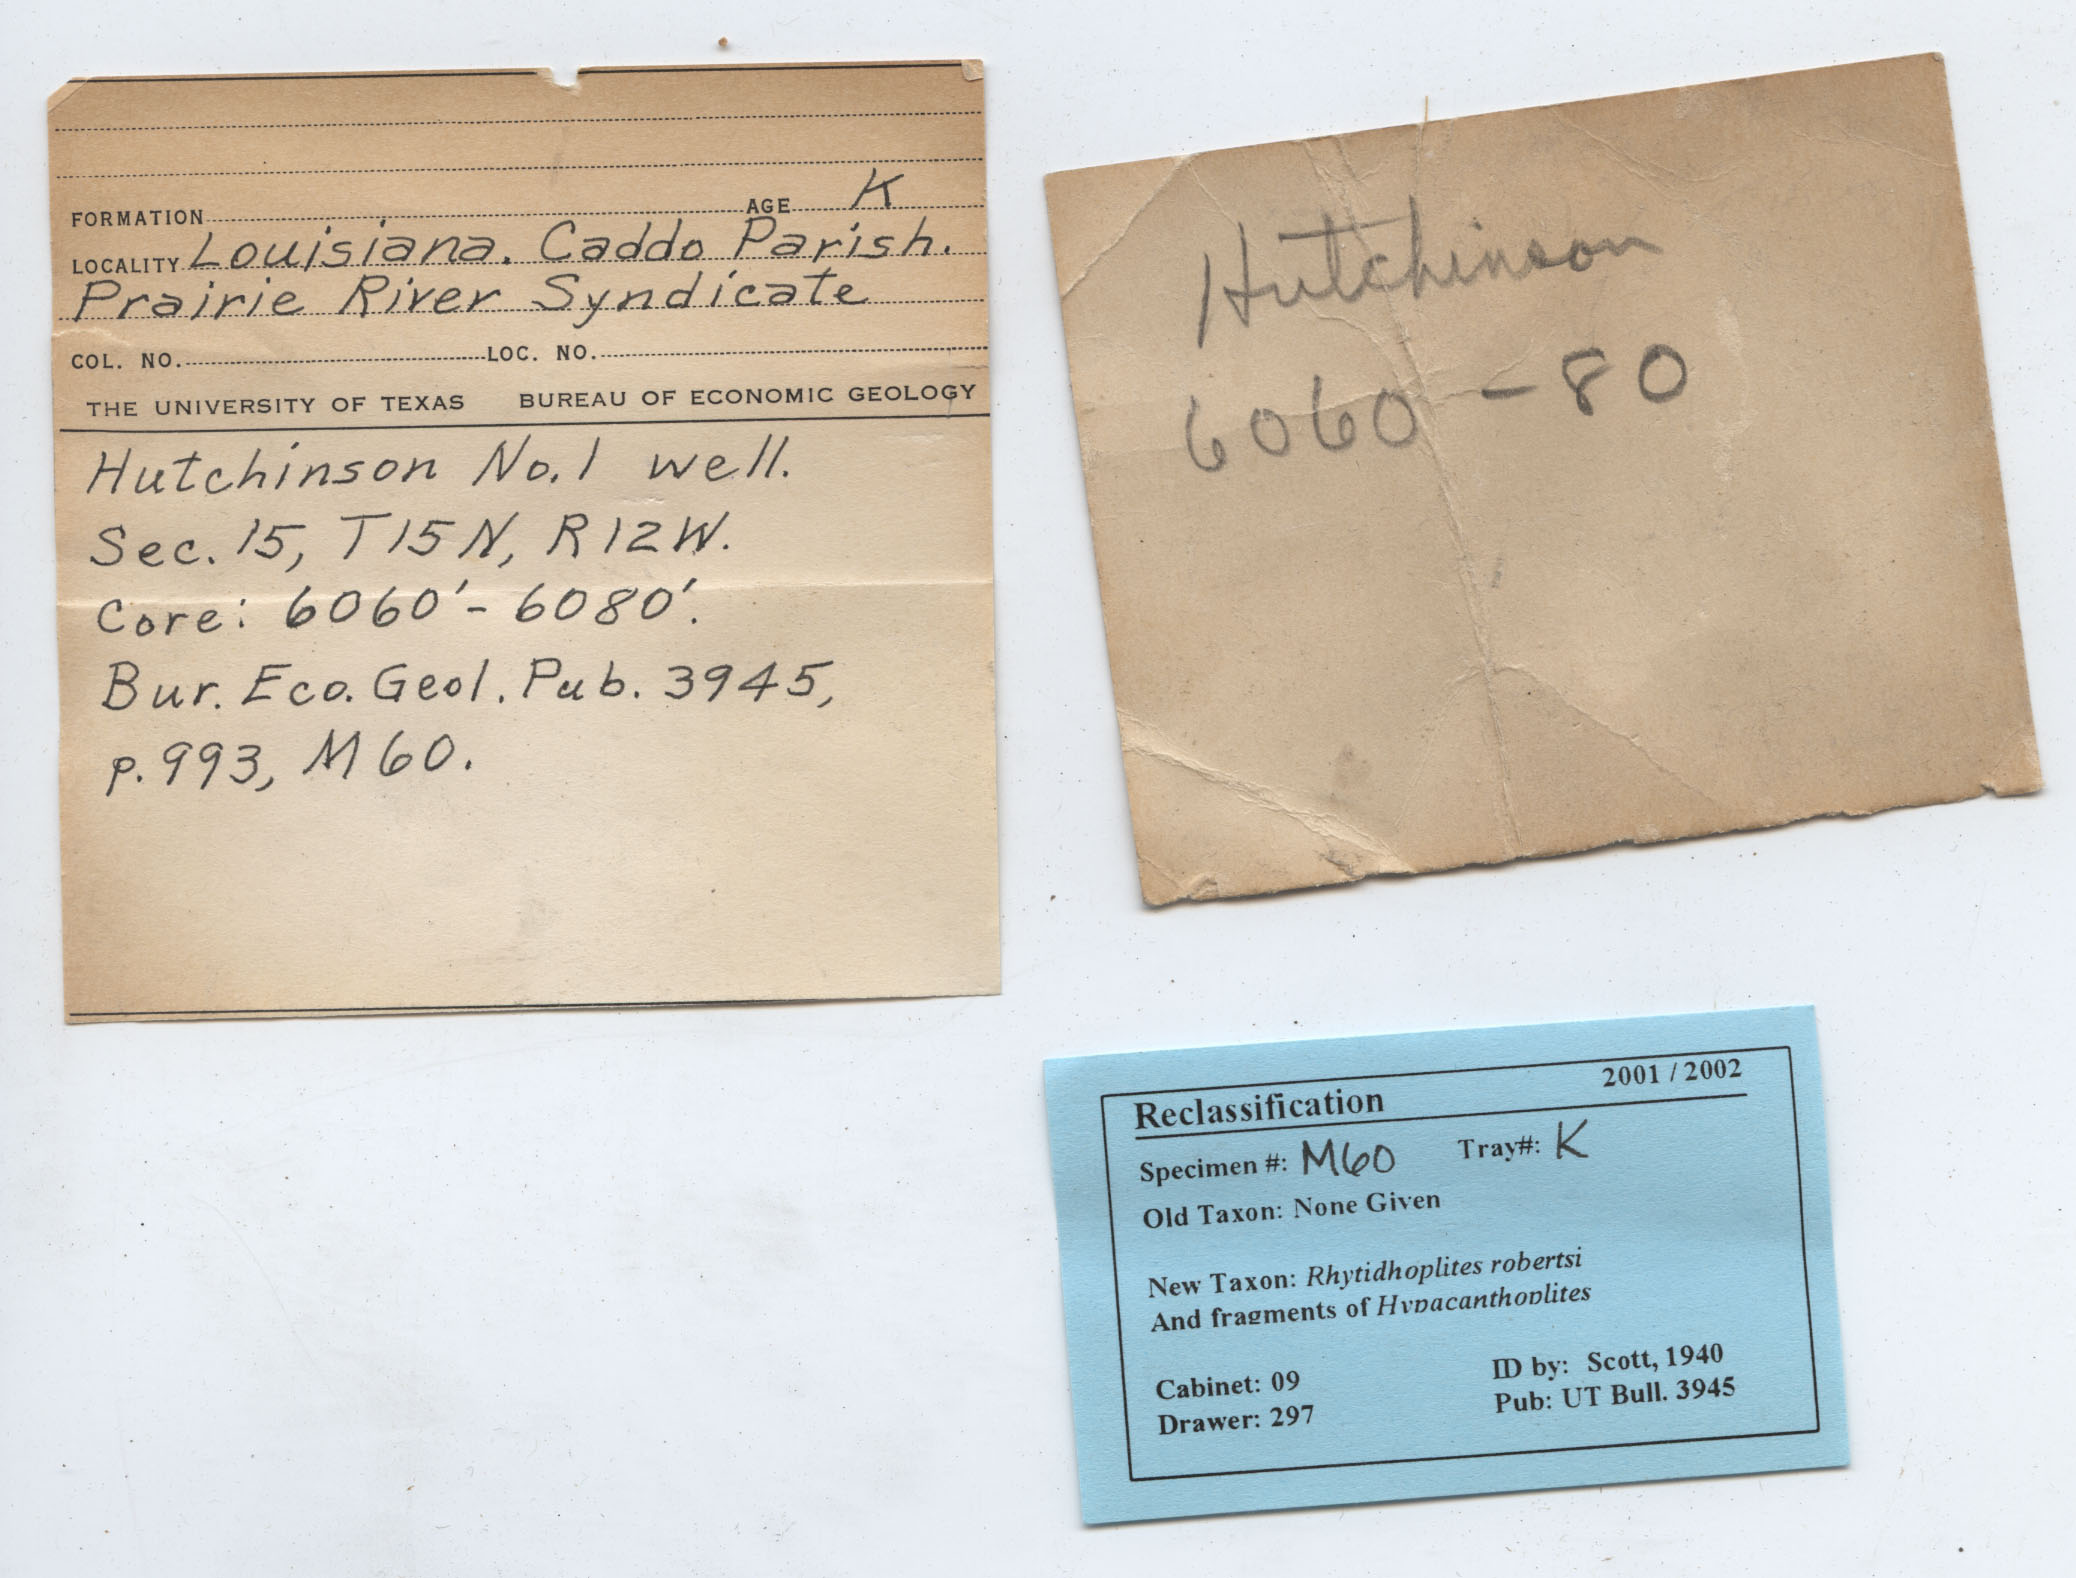 FORMATION AGE K
LOCALITY Louisiana. Caddo Parish.
Prairie River Syndicate
COL. NO. LOC. NO.
THE UNIVERSITY OF TEXAS BUREAU OF ECONOMIC GEOLOGY
Hutchinson No. 1 well.
Sec. 15, T15N, R12W.
Core: 6060'- 6080'.
Bur. Eco. Geol. Pub. 3945,
p. 993, M60.
Hutchinson
6060 - 80
Reclassification 2001 / 2002
Specimen #: M60 Tray#: K
Old Taxon: None Given
New Taxon: Rhytidhoplites robertsi
And fragments of Hypacanthoplites
Cabinet: 09 ID by: Scott, 1940
Drawer: 297 Pub: UT Bull. 3945